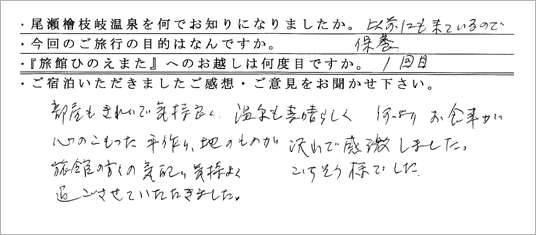 ・尾瀬檜枝岐温泉を何でお知りになりましたか。以前にも来ているので
・今回のご旅行の目的はなんですか。 保養
・『旅館ひのえまた』へのお越しは何度目ですか。 1回目
・ご宿泊いただきましたご感想・ご意見をお聞かせ下さい。
部屋もきれいで気持良く、温泉も素晴らしく 何よりお食事が
心のこもった手作り、地のものが 沢山で感激しました。
旅館の方々の気配り気持よく ごちそう様でした
過ごさせていただきました。